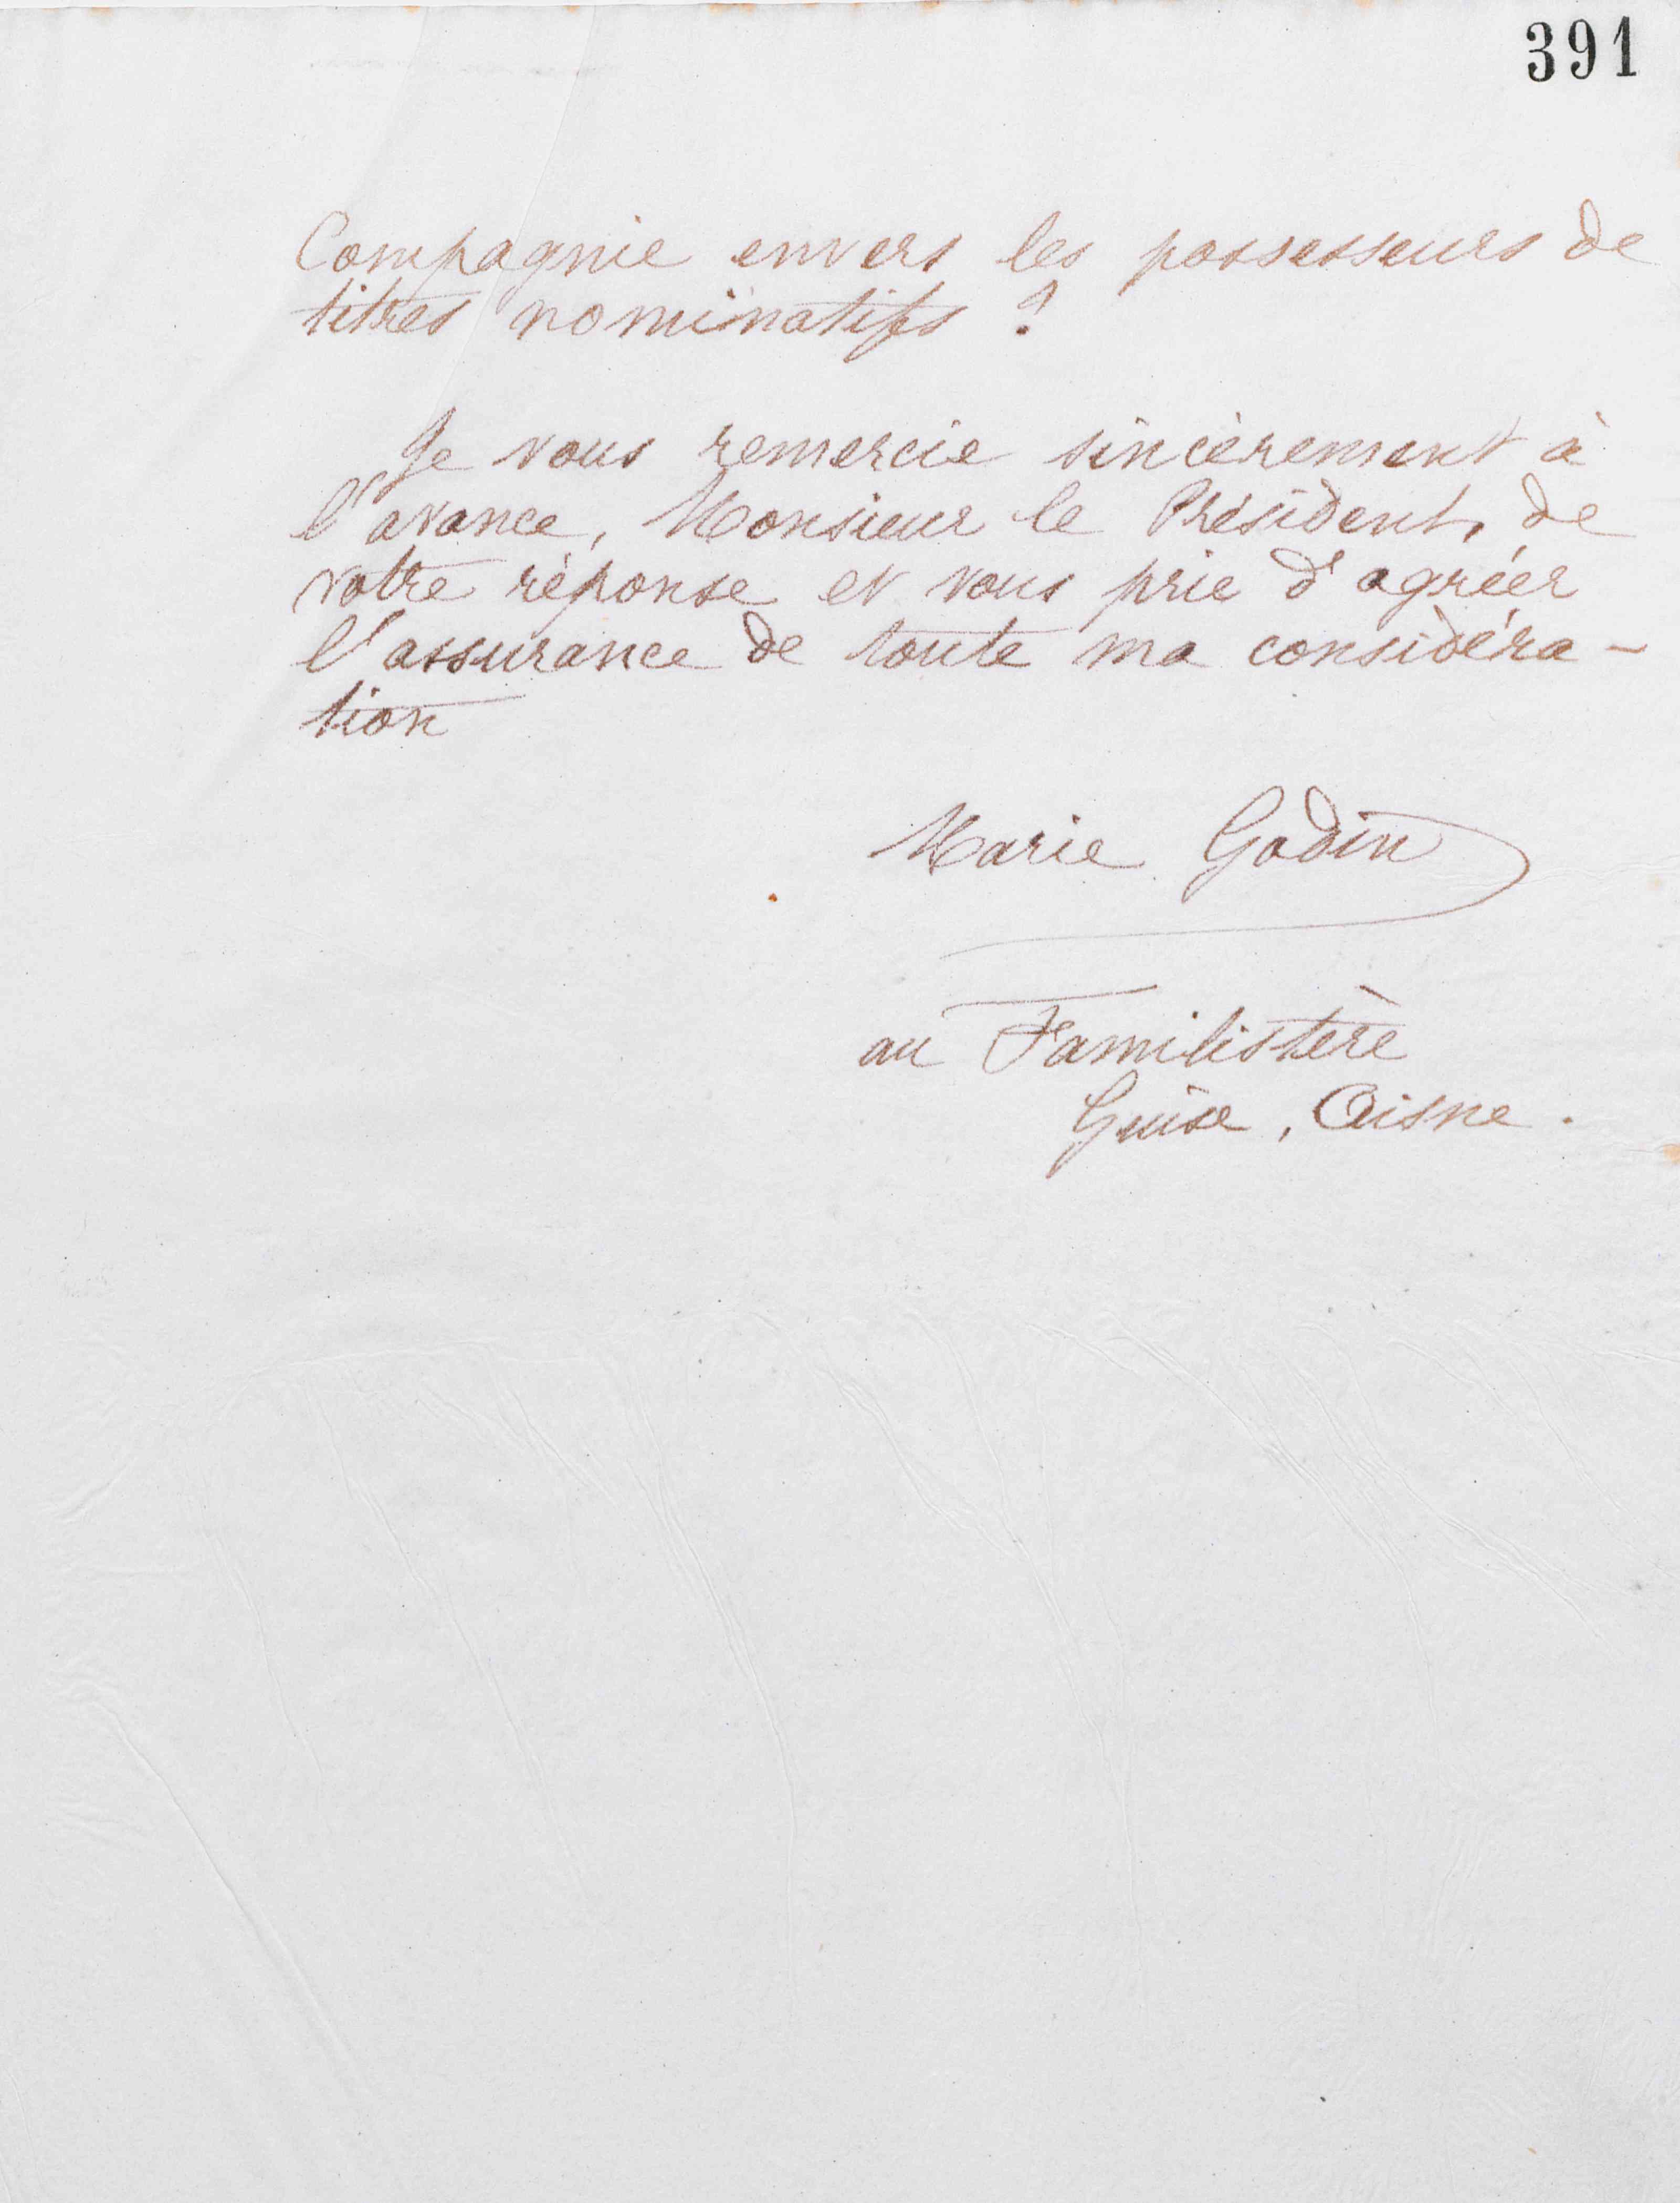 391
Compagnie envers les possesseurs de
titres nominatifs ?
Je vous remercie sincèrement à
l'avance, Monsieur le Président, de
votre réponse et vous prie d'agréer
l'assurance de toute ma considéra-
tion
Marie Godin
au Familistère
Guise, Aisne.